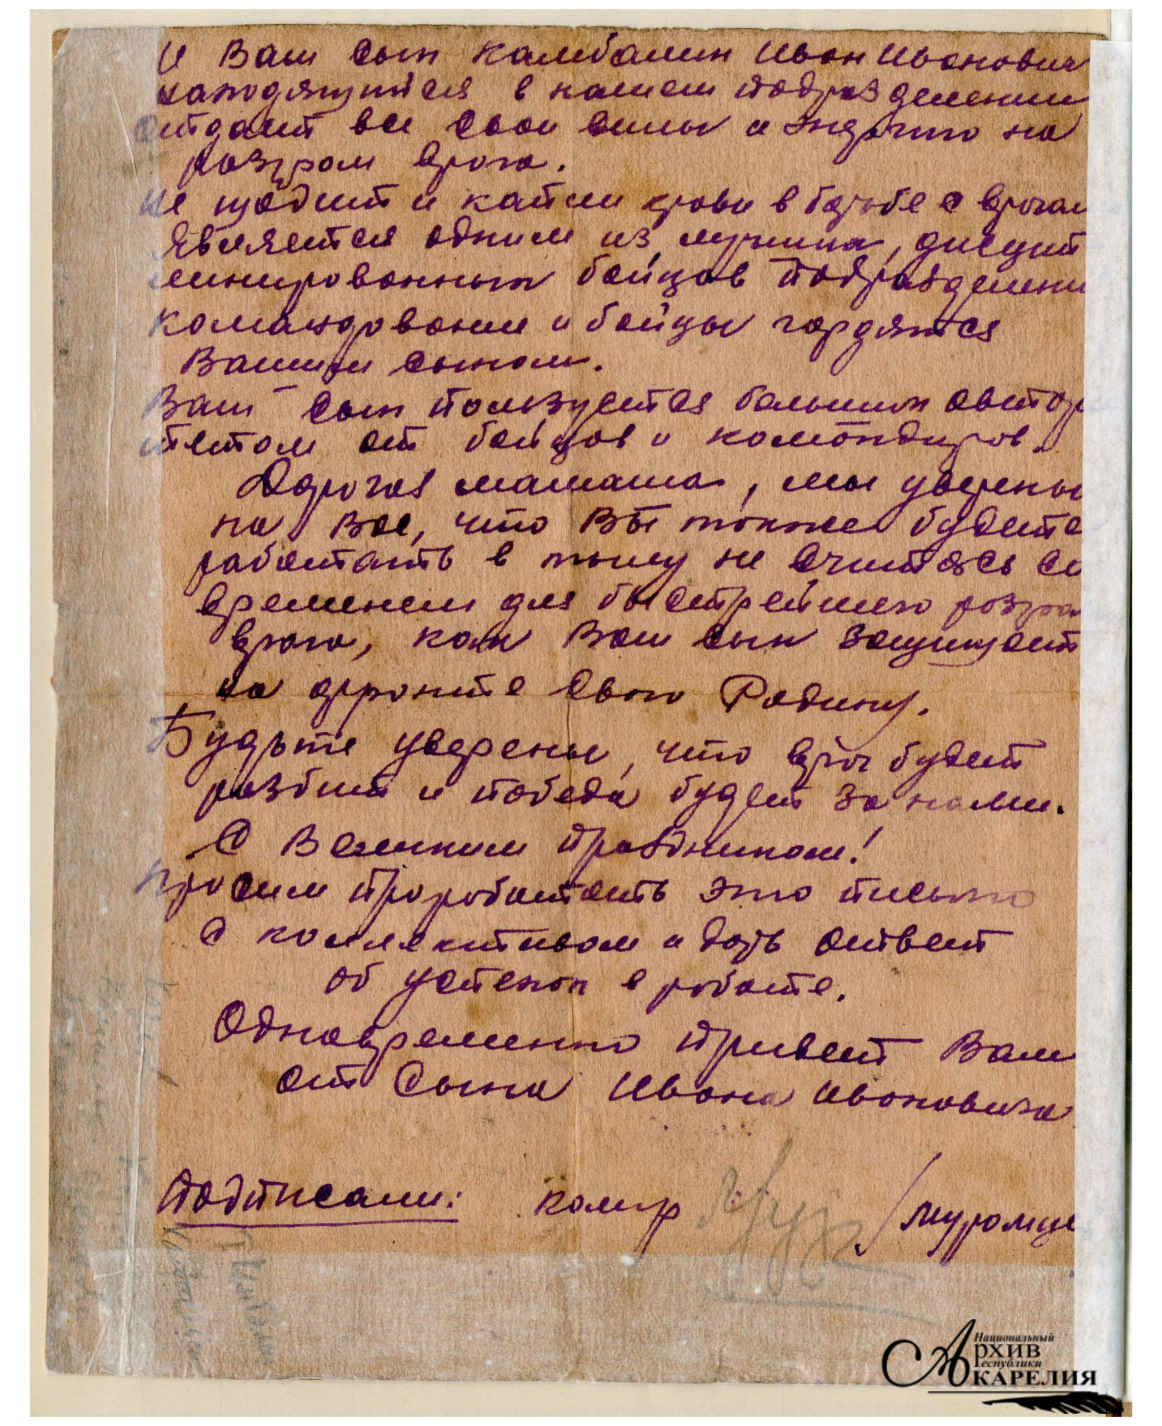 И Ваш сын Камбалин Иван Иванович
находящийся в нашем подразделении
отдает все свои силы и знания на
разгром врага.
не щадит и капли крови в борьбе с врагам
Является одним из лучших, дисцип
линированных бойцов подразделени
командование и бойцы гордятся
Вашим сыном.
Ваш сын пользуется большим автор
тетом от бойцов и командиров.
Дорогая мамаша, мы уверены
на Вас, что Вы также будете
работать в тылу не считаясь со
временем для быстрейшего разгром
врага, как Ваш сын защищает
на фронте свою Родину.
Будьте уверены, что враг будет
разбит и победа будет за нами.
С Великим праздником!
Просим проработать это письмо
с коллективом и дать ответ
об успехах в работе.
Одновременно привет Вам
от Сына Ивана Ивановича
Подписали: ком-р /Муромце
Национальный
Архив
Республики
Карелия